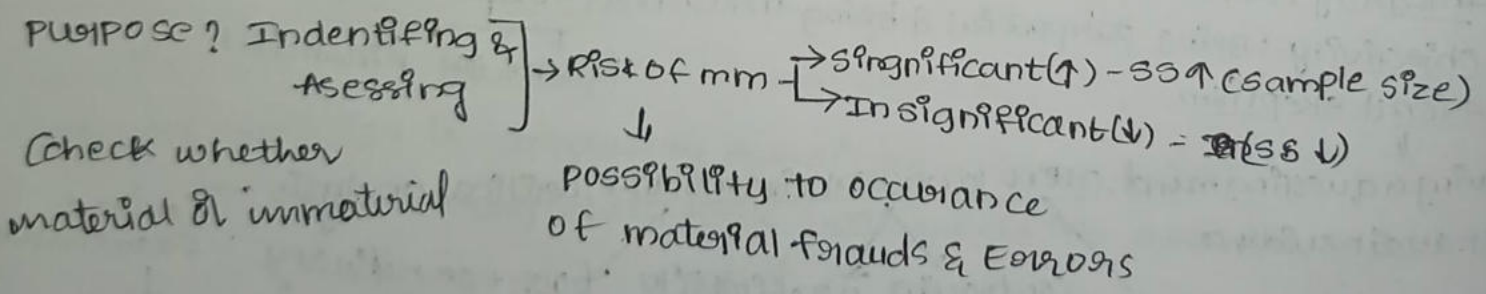 Purpose? Indentifing &
Asessing
→ Risk of mm → Singnificant(↑) - SS↑ (sample size)
→ Insignificant(↓) - (SS ↓)
(check whether
material or immaterial
↓
possibility to occurance
of material frauds & Errors